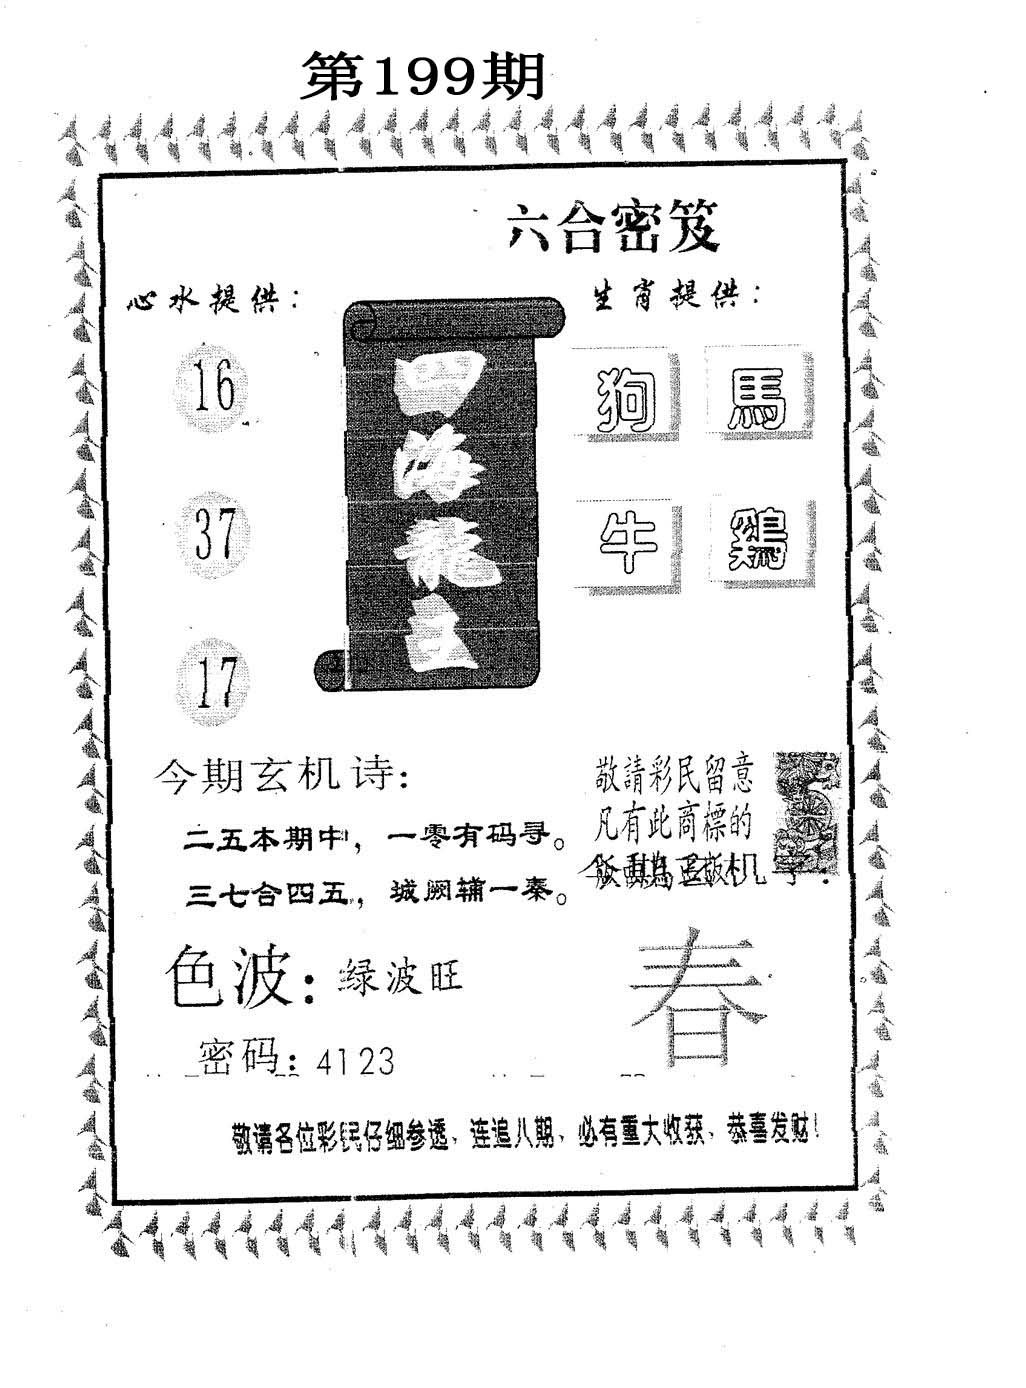 第199期
六合密笈
心水提供：
生肖提供：
16
37
17
四海龍王
狗 馬
牛 鷄
今期玄机诗：
二五本期中，一零有码寻。
三七合四五，城阙辅一秦。
敬請彩民留意
凡有此商標的
春
色波：绿波旺
密码：4123
敬请各位彩民仔细参透、连追八期、必有重大收获、恭喜发财！